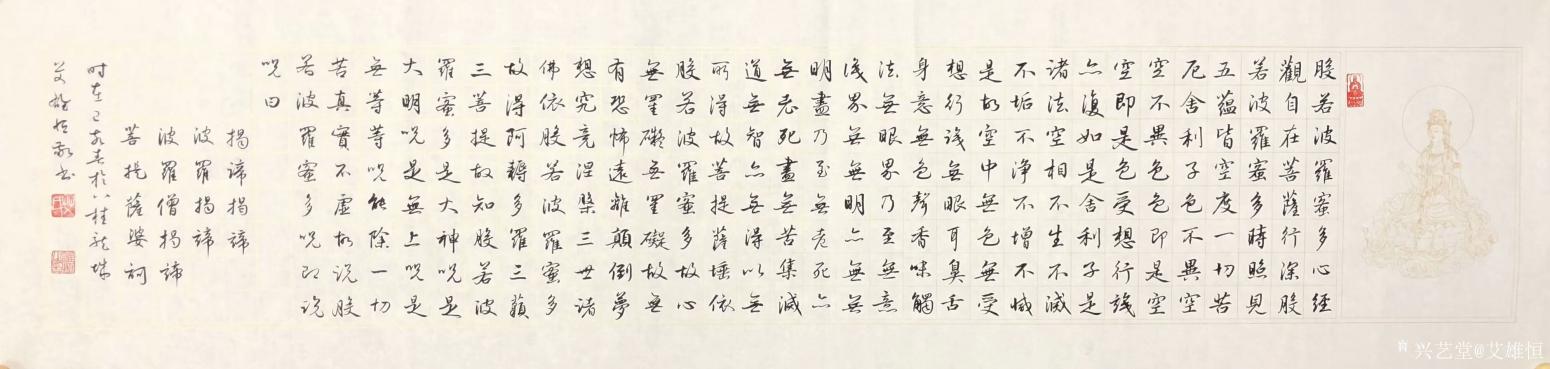 般若波羅蜜多心經
觀自在菩薩行深般
若波羅蜜多時照見
五蘊皆空度一切苦
厄舍利子色不異空
空不異色色即是空
空即是色受想行識
亦復如是舍利子是
諸法空相不生不滅
不垢不淨不增不減
是故空中無色無受
想行識無眼耳鼻舌
身意無色聲香味觸
法無眼界乃至無意
識界無無明亦無無
明盡乃至無老死亦
無老死盡無苦集滅
道無智亦無得以無
所得故菩提薩埵依
般若波羅蜜多故心
無罣礙無罣礙故無
有恐怖遠離顛倒夢
想究竟涅槃三世諸
佛依般若波羅蜜多
故得阿耨多羅三藐
三菩提故知般若波
羅蜜多是大神呪是
大明呪是無上呪是
無等等呪能除一切
苦真實不虛故説般
若波羅蜜多呪即説
呪曰
揭諦揭諦
波羅揭諦
波羅僧揭諦
菩提薩婆訶
時在己亥春於八桂龍城
艾雄恒敬書
兴艺堂@艾雄恒